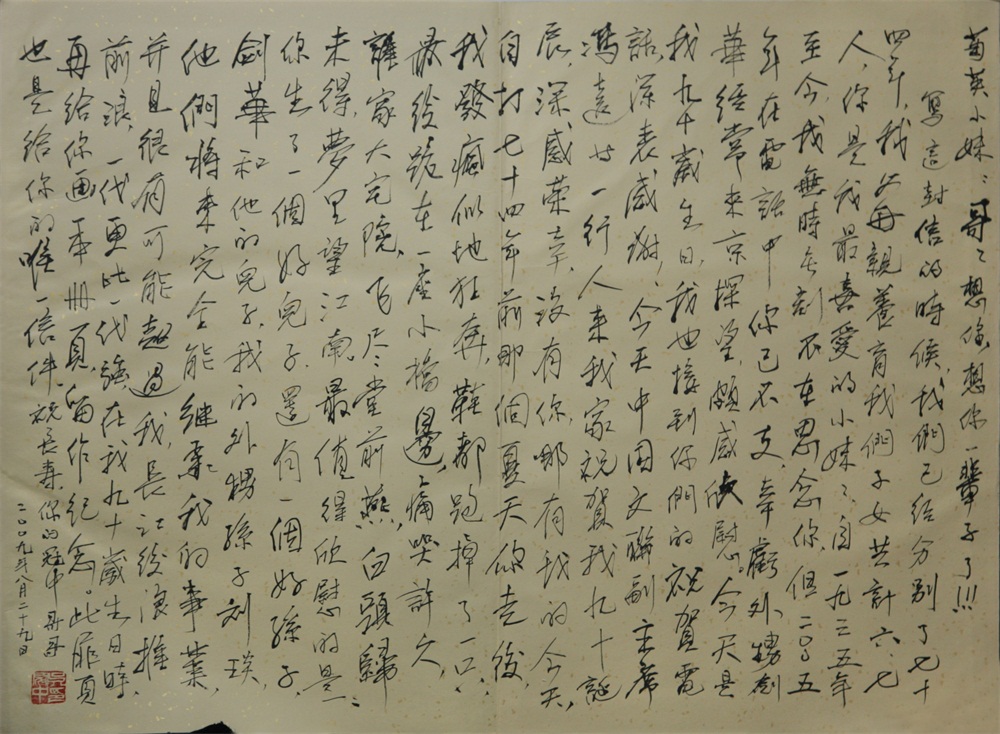 菊英小妹：哥哥想你，想你一輩子了!!!
寫這封信的時候，我們已给分别了七十
四年，我父母親養育我們子女共計六、七
人，你是我最喜愛的小妹妹，自一九三五年
至今，我無時無刻不在思念你，但二〇〇五
年在電話中你已不支，幸虧外甥劍
華经常來京探望，頗感欣慰。今天是
我九十歲生日，我也接到你們的祝賀電
話，深表感谢，今天中国文聯副主席
馮遠 一行人来我家祝賀我九十誕
辰，深感荣幸，没有你，哪有我的今天，
自打七十四年前那個夏天你走後，
我發瘋似地狂奔，鞋都跑掉了一只，
最後跪在一座小橋邊，痛哭許久，
謹家大宅院，飞尽堂前燕，白頭歸
未得，夢里望江南，最值得欣慰的是：
你生了一個好兒子，還有一個好孫子，
劍華和他的兒子，我的外甥孫子刘琰，
他們將来完全能继承我的事業，
并且很有可能超過我，長江後浪推
前浪，一代更比一代強，在我九十歲生日時，
再给你画一本册頁，留作纪念。此扉頁
也是给你的唯一信件。祝長壽。你的冠中哥哥
二〇〇九年八月二十九日
吳冠中印